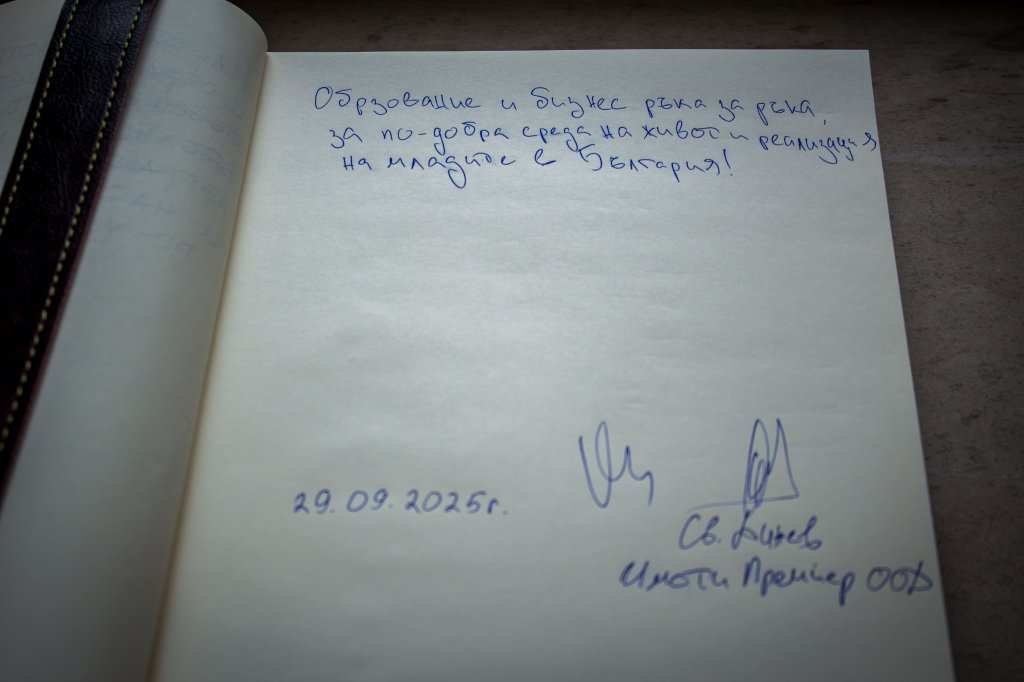 Обрзование и бизнес ръка за ръка,
за по-добра среда на живот и реализация
на младите в България!
29.09.2025г.
Св. Динев
Имоти Премиер ООД